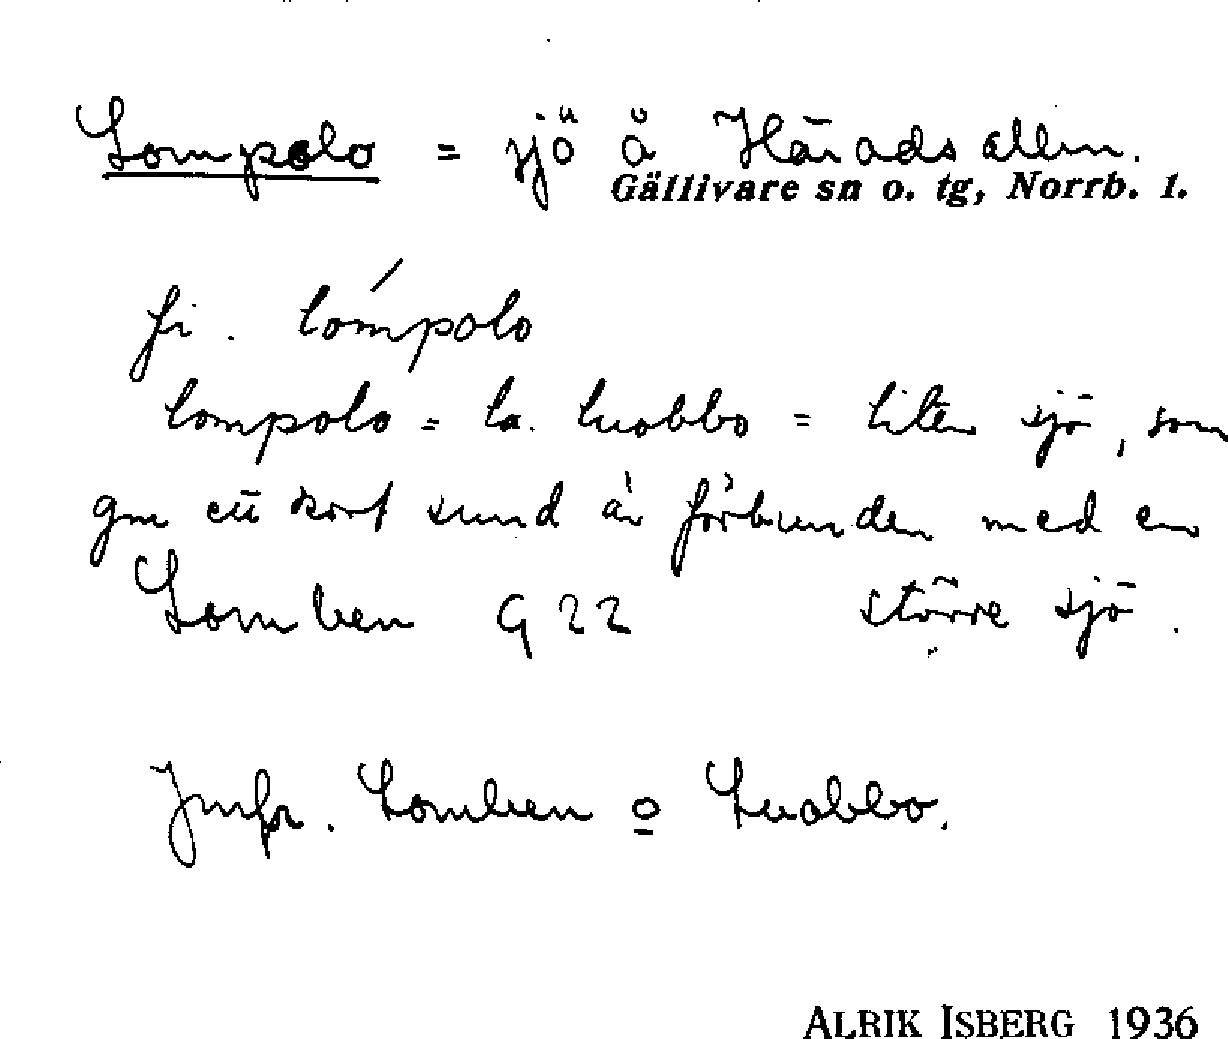 Lompolo = sjö å Häradsallm.
Gällivare sn o. tg, Norrb. l.
fi. lómpolo
lompolo = la. luobbo = liten sjö, som
gm ett kort sund är förbunden med en
Lomben G 22 större sjö.
Jmfr. Lomben o Luobbo.
ALRIK ISBERG 1936